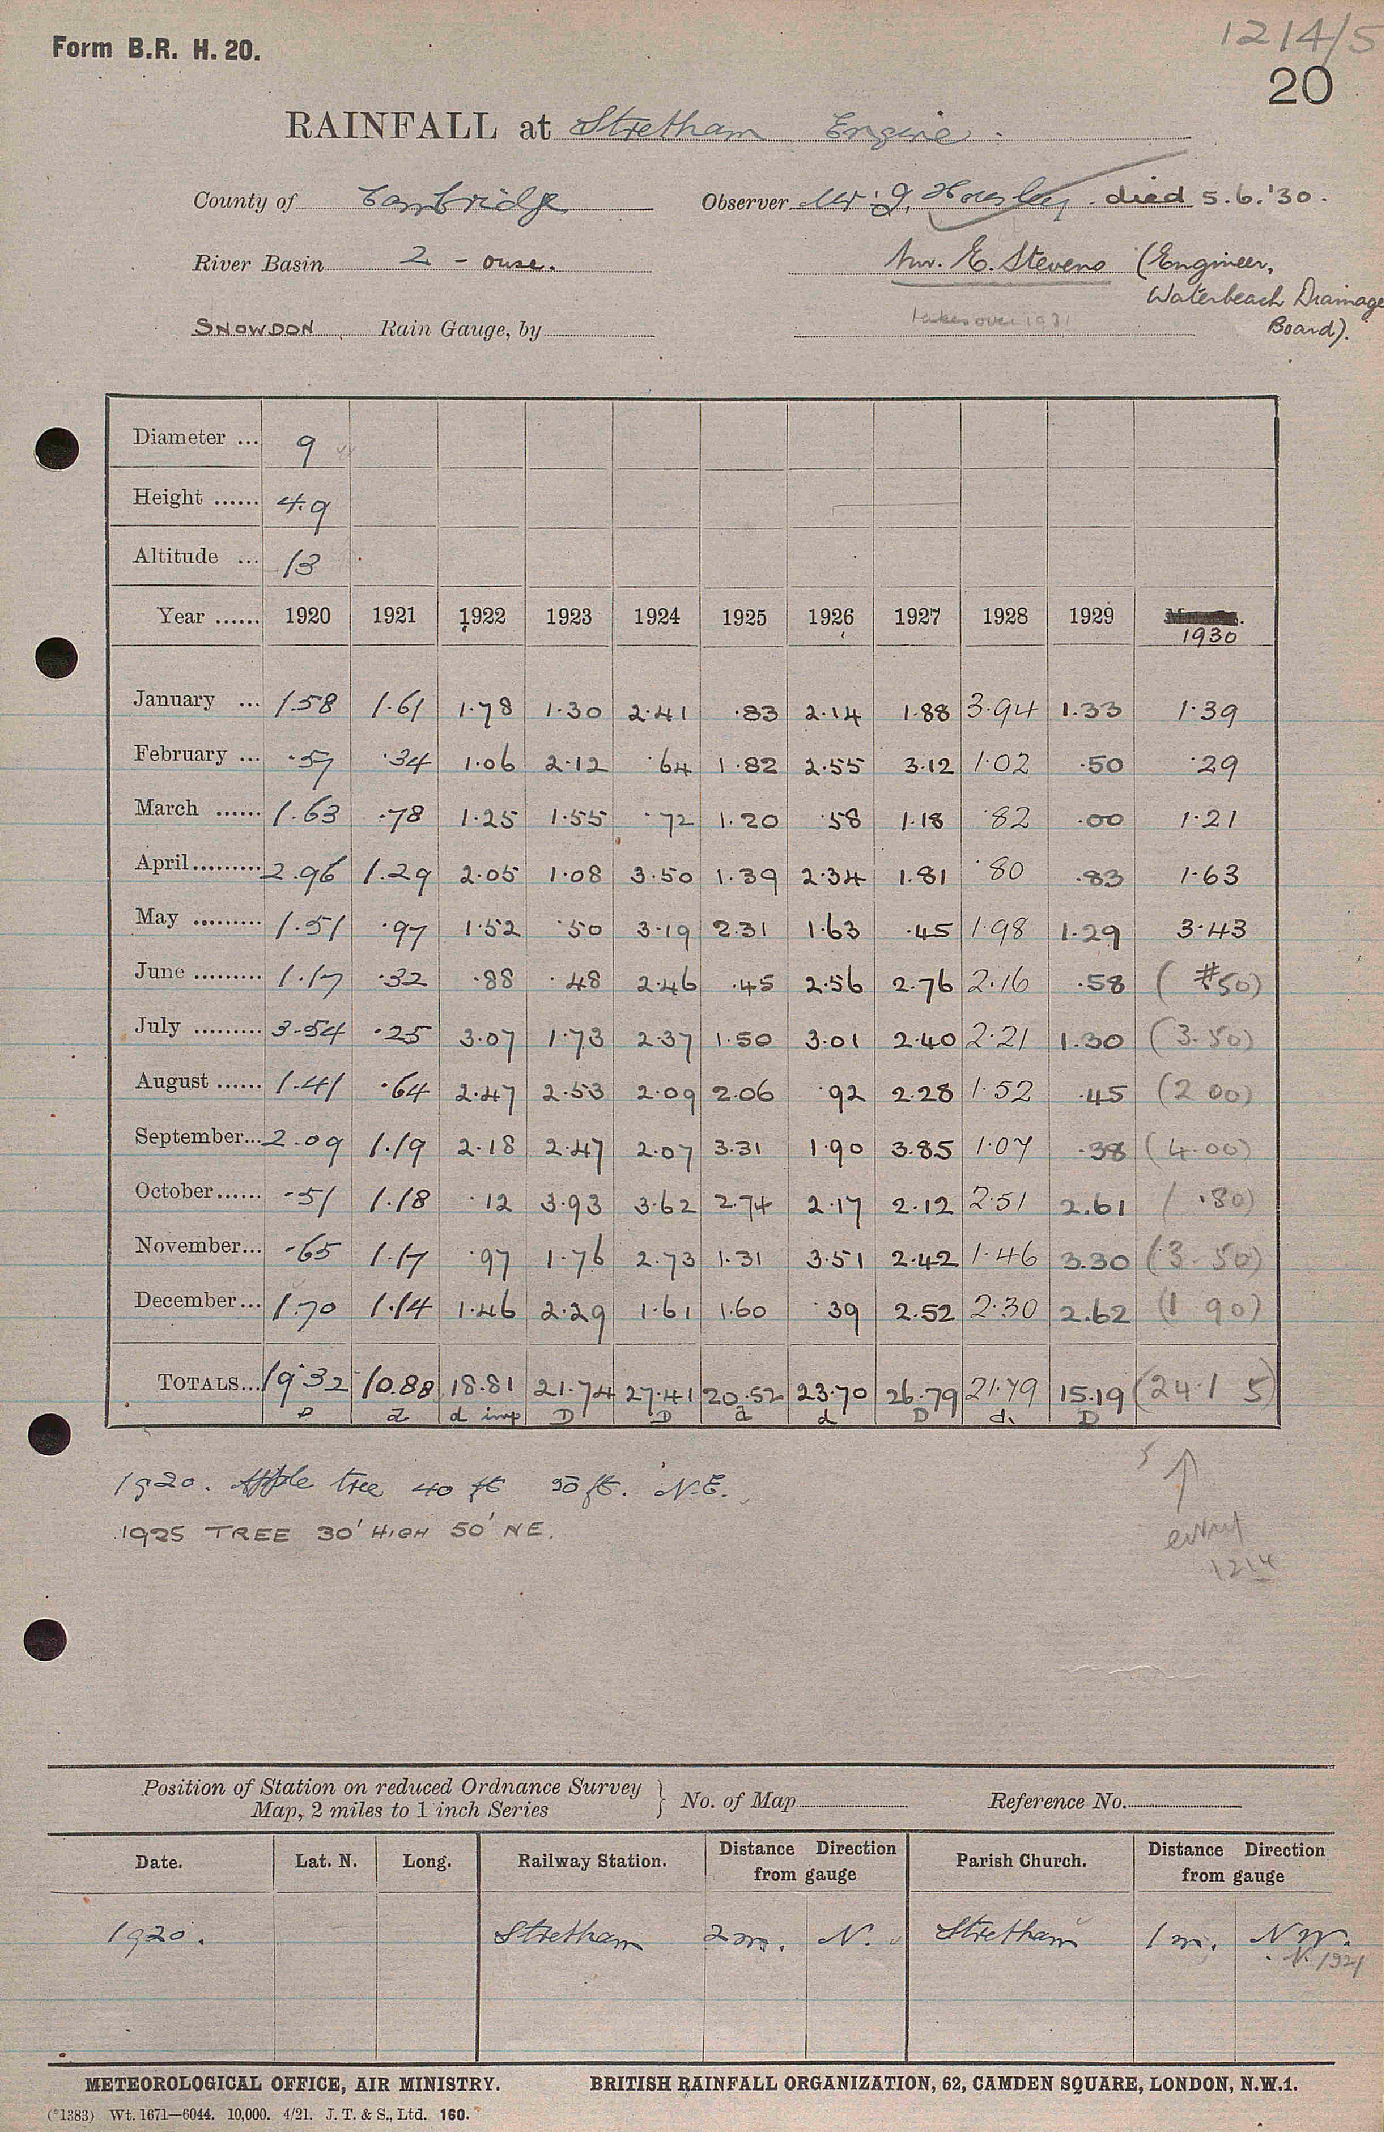 1214/5
Form B.R. H. 20.
20
RAINFALL at Stretham Engine.
County of Cambridge Observer Mr. J. died 5.6.'30.
River Basin 2 - ouse. Mr. E. Stevens (Engineer,
Waterbeach Drainage
Board).
SNOWDON Rain Gauge, by takes over 1931
Diameter ... 9
Height ...... 4.9
Altitude ... 13
Year ...... 1920 1921 1922 1923 1924 1925 1926 1927 1928 1929 1930
January ... 1.58 1.61 1.78 1.30 2.41 .83 2.14 1.88 3.94 1.33 1.39
February ... .57 .34 1.06 2.12 .64 1.82 2.55 3.12 1.02 .50 .29
March ...... 1.63 .78 1.25 1.55 .72 1.20 .58 1.18 .82 .00 1.21
April ......... 2.96 1.29 2.05 1.08 3.50 1.39 2.34 1.81 .80 .83 1.63
May ......... 1.51 .97 1.52 .50 3.19 2.31 1.63 .45 1.98 1.29 3.43
June ......... 1.17 .32 .88 .48 2.46 .45 2.56 2.76 2.16 .58 ( .50)
July ......... 3.54 .25 3.07 1.73 2.37 1.50 3.01 2.40 2.21 1.30 (3.50)
August ...... 1.41 .64 2.47 2.53 2.09 2.06 .92 2.28 1.52 .45 (2 00)
September... 2.09 1.19 2.18 2.47 2.07 3.31 1.90 3.85 1.07 .38 (4.00)
October...... .51 1.18 .12 3.93 3.62 2.74 2.17 2.12 2.51 2.61 ( .80)
November... .65 1.17 .97 1.76 2.73 1.31 3.51 2.42 1.46 3.30 (3.50)
December... 1.70 1.14 1.46 2.29 1.61 1.60 .39 2.52 2.30 2.62 (1 90)
TOTALS... 19.32 10.88 18.81 21.74 27.41 20.52 23.70 26.79 21.79 15.19 (24.1 5)
D d d imp D D d d D d. D
1920. Apple tree 40 ft 50 ft. N.E.
1925 TREE 30' HIGH 50' NE.
entry
1214
Position of Station on reduced Ordnance Survey
Map, 2 miles to 1 inch Series } No. of Map Reference No.
Date. Lat. N. Long. Railway Station. Distance Direction from gauge Parish Church. Distance Direction from gauge
1920. Stretham 2 m. N. Stretham 1 m. N W.
N. 1921
METEOROLOGICAL OFFICE, AIR MINISTRY. BRITISH RAINFALL ORGANIZATION, 62, CAMDEN SQUARE, LONDON, N.W.1.
(*1383) Wt. 1671—6044. 10,000. 4/21. J. T. & S., Ltd. 160.